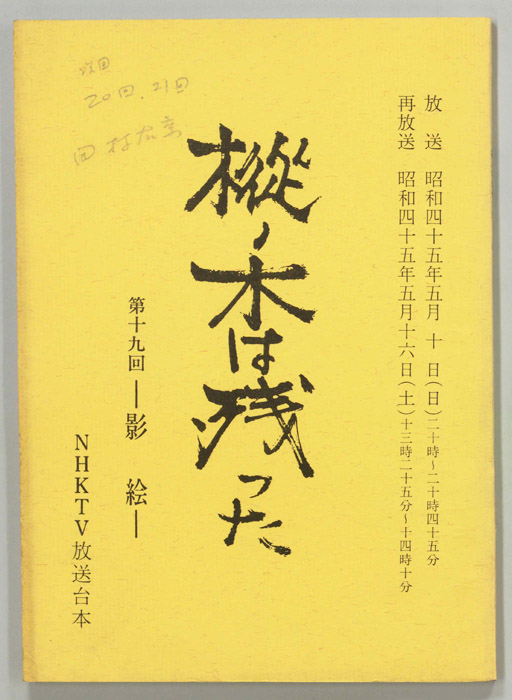 放送 昭和四十五年五月十日(日)二十時~二十時四十五分
再放送 昭和四十五年五月十六日(土)十三時二十五分~十四時十分
樅ノ木は残った
第十九回 ―影絵―
NHKTV放送台本
20回、21回
田村右京